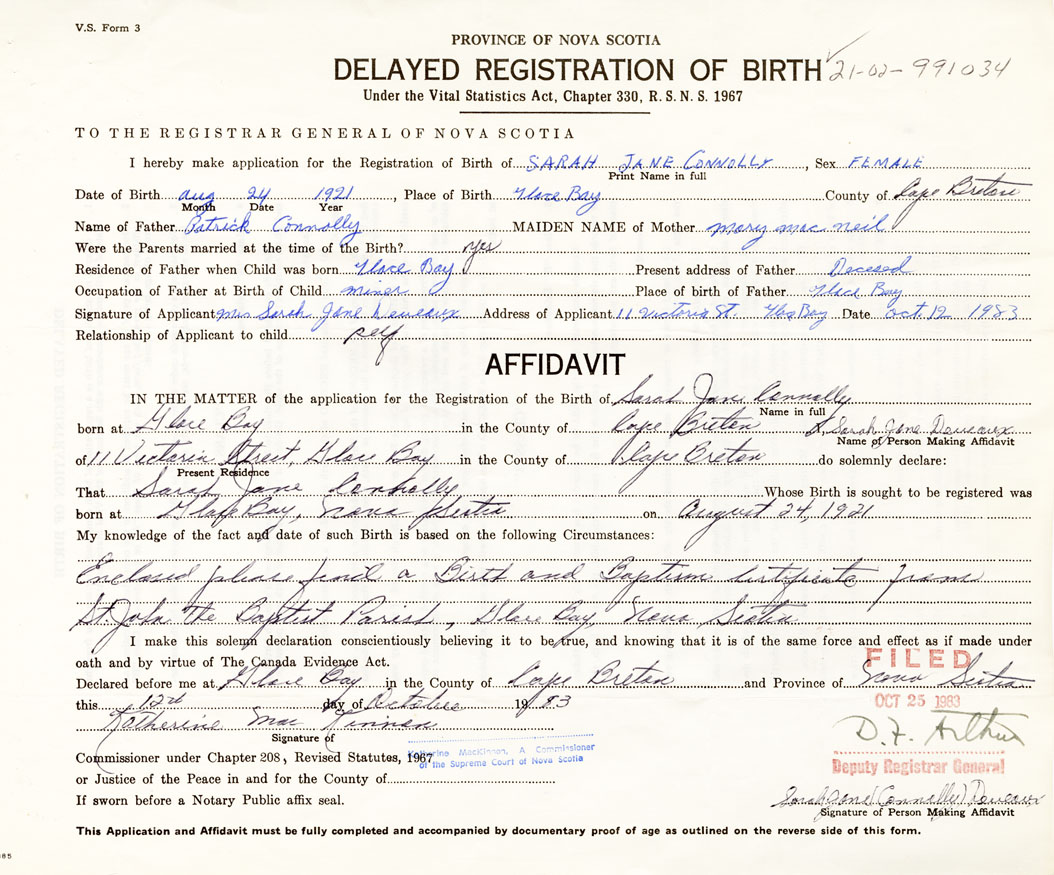 V.S. Form 3
PROVINCE OF NOVA SCOTIA
DELAYED REGISTRATION OF BIRTH 21-02-991034
Under the Vital Statistics Act, Chapter 330, R. S. N. S. 1967
TO THE REGISTRAR GENERAL OF NOVA SCOTIA
I hereby make application for the Registration of Birth of SARAH JANE CONNOLLY, Sex FEMALE
Print Name in full
Date of Birth Aug 24 1921, Place of Birth Glace Bay County of Cape Breton
Month Date Year
Name of Father Patrick Connolly MAIDEN NAME of Mother Mary Mac neil
Were the Parents married at the time of the Birth? yes
Residence of Father when Child was born Glace Bay Present address of Father Decesed
Occupation of Father at Birth of Child miner Place of birth of Father Glace Bay
Signature of Applicant Mrs Sarah Jane Deveaux Address of Applicant 11 Victoria St. Glace Bay Date oct. 12 1983
Relationship of Applicant to child self
AFFIDAVIT
IN THE MATTER of the application for the Registration of the Birth of Sarah Jane Connolly
Name in full
born at Glace Bay in the County of Cape Breton I, Sarah Jane Deveaux
Name of Person Making Affidavit
of 11 Victoria Street, Glace Bay in the County of Cape Breton do solemnly declare:
Present Residence
That Sarah Jane Connolly Whose Birth is sought to be registered was
born at Glace Bay, Nova Scotia on August 24, 1921
My knowledge of the fact and date of such Birth is based on the following Circumstances:
Enclosed please find a Birth and Baptism Certificate from
St. John the Baptist Parish, Glace Bay, Nova Scotia
I make this solemn declaration conscientiously believing it to be true, and knowing that it is of the same force and effect as if made under
oath and by virtue of The Canada Evidence Act.
FILED
Declared before me at Glace Bay in the County of Cape Breton and Province of Nova Scotia
this 12th day of October 1983
OCT 25 1983
Katherine Mac Kinnon
D. F. Arthur
Signature of
Katherine MacKinnon, A Commissioner
of the Supreme Court of Nova Scotia
Commissioner under Chapter 208, Revised Statutes, 1967
Deputy Registrar General
or Justice of the Peace in and for the County of
If sworn before a Notary Public affix seal.
Sarah Jane (Connolly) Deveaux
Signature of Person Making Affidavit
This Application and Affidavit must be fully completed and accompanied by documentary proof of age as outlined on the reverse side of this form.